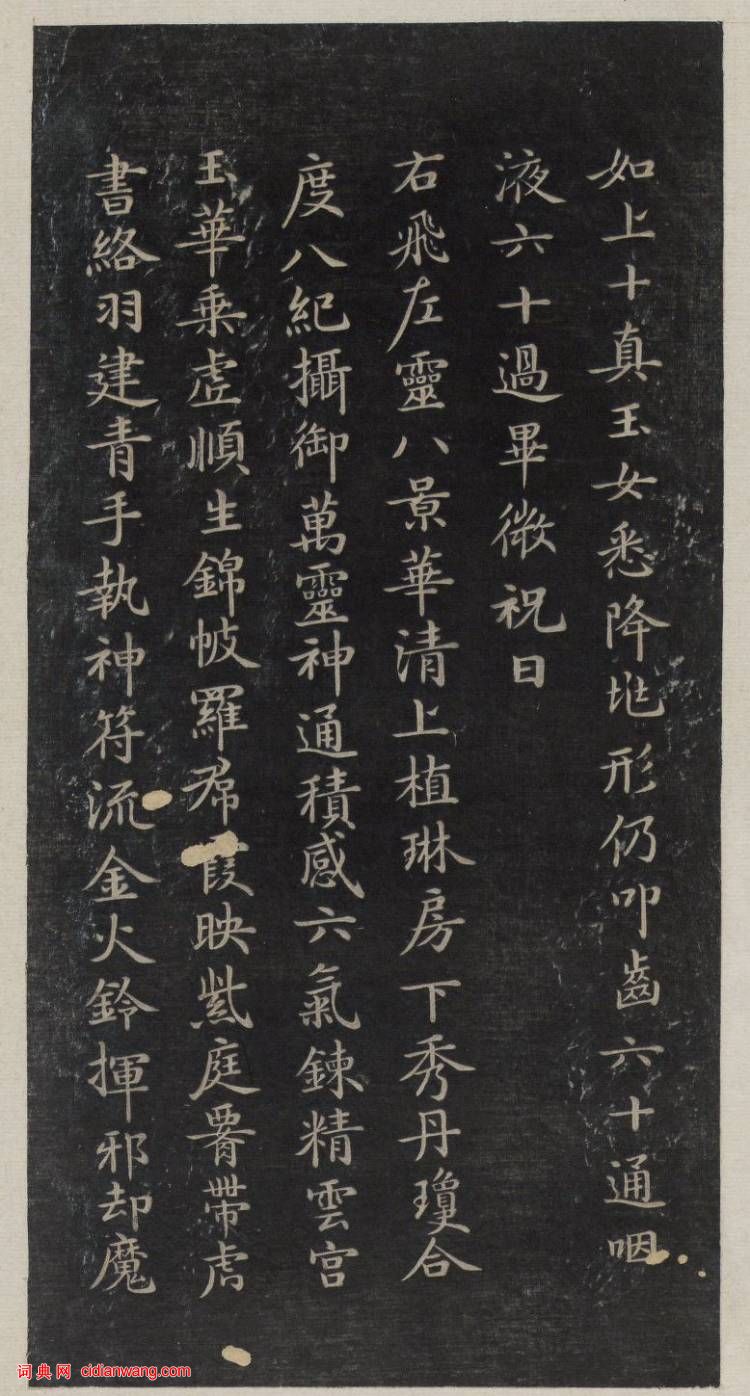 如上十真玉女悉降地形仍叩齒六十通咽
液六十過畢微祝曰
右飛左靈八景華清上植琳房下秀丹瓊合
度八紀攝御萬靈神通積感六氣鍊精雲宮
玉華乘虛順生錦帔羅帬霞映紫庭腎帶虎
書絡羽建青手執神符流金火鈴揮邪却魔
词典网 cidianwang.com